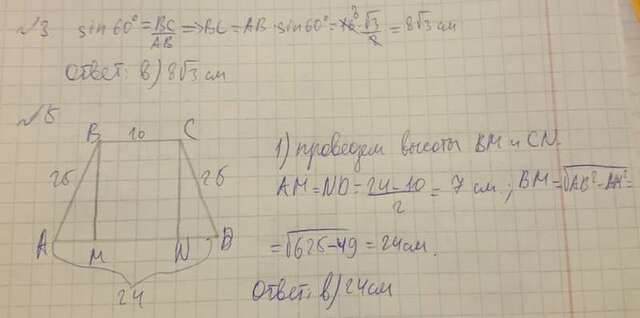 №3 sin60° = BC/AB => BC = AB · sin60° = 16 · √3/2 = 8√3 см
Ответ: в) 8√3 см
№5
B 10 C
25 25
A M N D
24
1) проведем высоты BM и CN.
AM = ND = (24-10)/2 = 7 см; BM = √AB² - AM² =
= √625-49 = 24см.
Ответ: в) 24см